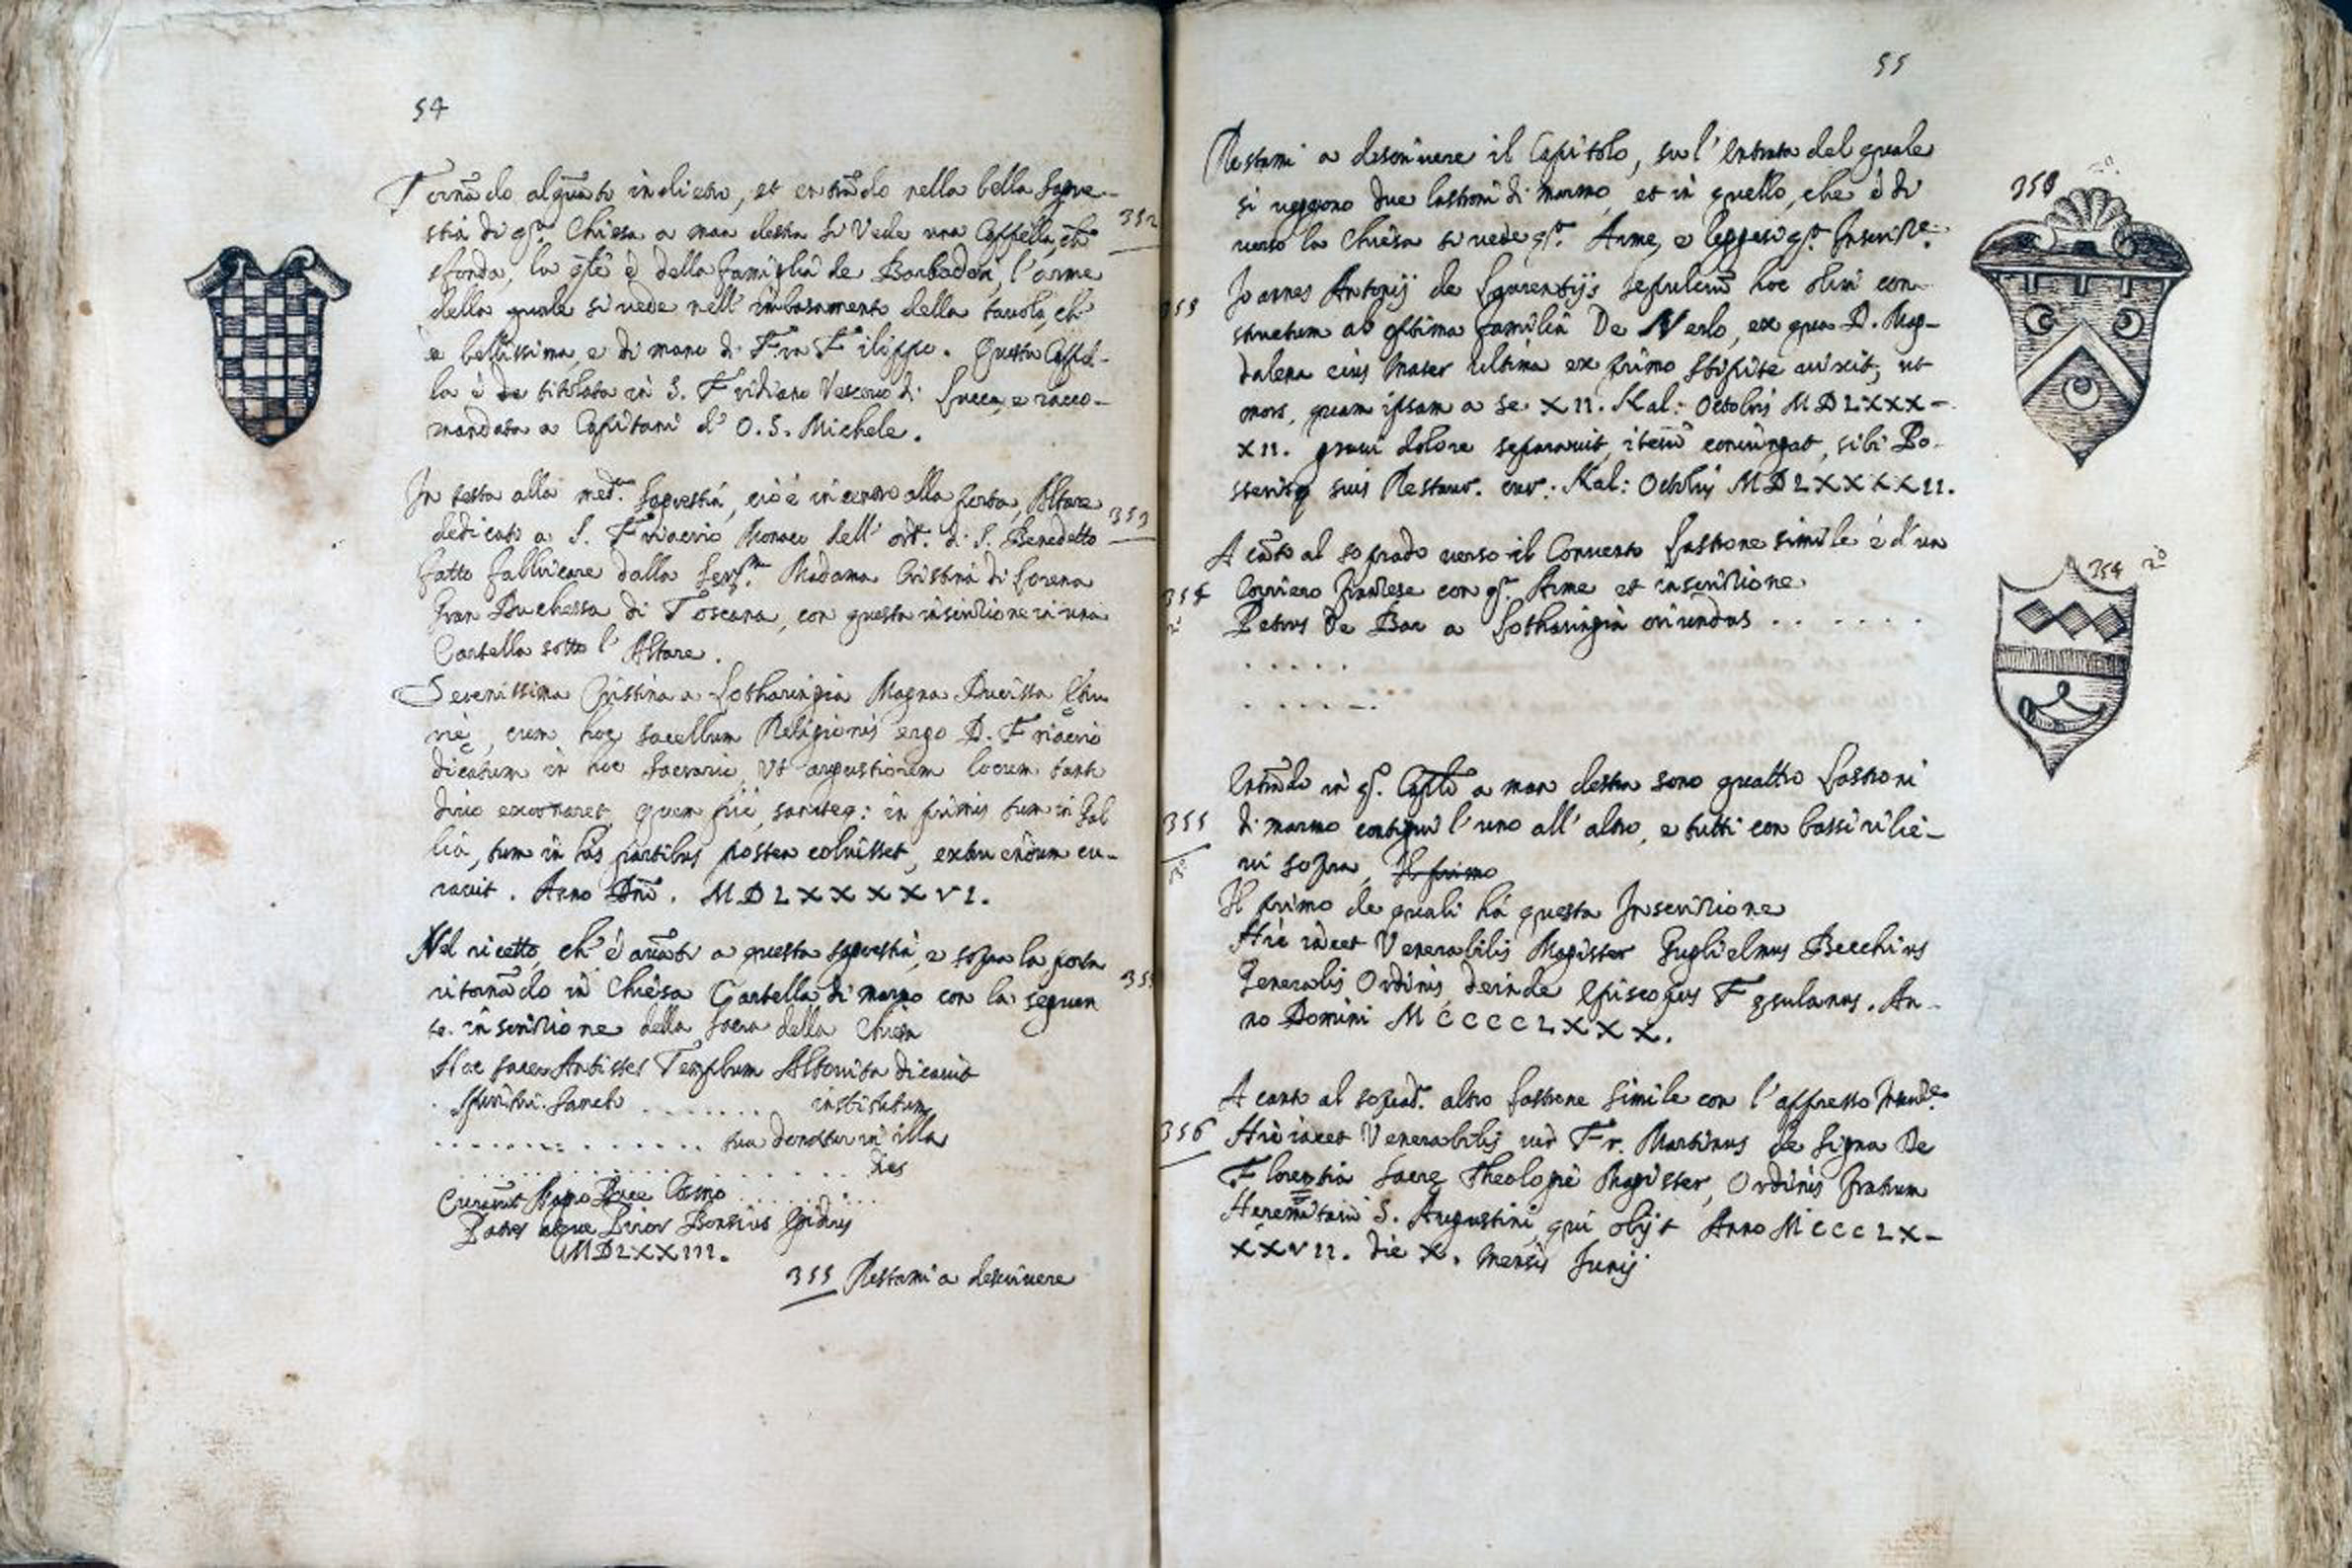 54
Tornādo alquāto indietro, et entrādo nella bella sagre-
stia di qta Chiesa a man destra si Vede una Cappella, ch'
sfonda, la qle è della famiglia de Barbadori, l'arme
della quale si vede nell' imbasamento della tavola, ch'
è bellissima, e di mano di Fra Filippo. Questa Cappel-
la è titolata in S. Fridiano Vescovo di Lucca, e racco-
mandata a Capitani d' O. S. Michele.
352
In testa alla med.a Sagrestia, cioè incontro alla porta, Altare
dedicato a S. Friacrio Monaco dell' ord. di S. Benedetto
fatto fabbricare dalla Ser.ma Madama Cristina di Lorena
Gran Duchessa di Toscana, con questa inscritione in una
Cartella sotto l' Altare.
353
Serenissima Cristina a Lotharingia Magna Ducissa Etru
rię, cum hoc sacellum Religionis ergo D. Friacrio
dicatum in hoc Sacrario, Ut angustiorem locum tanto
divo exornaret, quem piè, sancteq: in primis tum in Gal
lia, tum in his partibus postea coluisset, extruendum cu-
ravit. Anno Dñi. MDLXXXXVI.
Nel ricetto, ch' è avāti a questa sagrestia, e sopra la porta
ritornādo in Chiesa Cartella di marmo con la seguen
te inscritione della Sacra della Chiesa
Hoc sacer Antistes Templum Altovita dicavit
Spiritui Sancto ....... institutum
................ sua donatur in illa
.................... dies
Curavit Magno Duce Cosmo ..........
Pater atque Prior Bonsius
MDLXXIII.
355 Restami a descrivere
55
Restami a descrivere il Capitolo, su l' Entrata del quale
si veggono due lastroni di marmo, et in quello, che è di
verso la Chiesa si vede qta Arme, e leggesi qta Inscritne.
353
Joannes Antonij de Laurentijs sepulcrū hoc olim con-
structum ab optima familia De Nerlo, ex qua D. Mag-
dalena eius Mater ultima ex primo stipite vixit; ut
mors, quam ipsam a se XII. Kal: Octobris MDLXXX-
XII. gravi dolore separavit, iterū coniungat, sibi Po-
sterisq suis Restaur. cur: Kal: Octobris MDLXXXXII.
A cāto al soprado verso il Convento lastrone simile è d'un
Corriero franzese con qta Arme et inscritione
354
Petrus De Bar a Lotharingia oriundus ......
.....
......
Entrādo in qo Caplo a man destra sono quattro lastroni
di marmo contigui l'uno all' altro, e tutti con bassi rilie-
vi sopra, Il primo
355
Il primo de quali há questa Inscritione
Hic iacet Venerabilis Magister Guglielmus Becchius
Generalis Ordinis, deinde Episcopus Fęsulanus. An-
no Domini MCCCCLXXX.
A canto al soprad. altro lastrone simile con l'appresso Inscritne.
356
Hic iacet Venerabilis vir Fr. Martinus de Signa De
Florentia Sacrę Theologię Magister, Ordinis fratrum
Heremitarū S. Augustini, qui obijt Anno MCCCLX-
XXVII. die X. Mensis Junij
353
354
2º